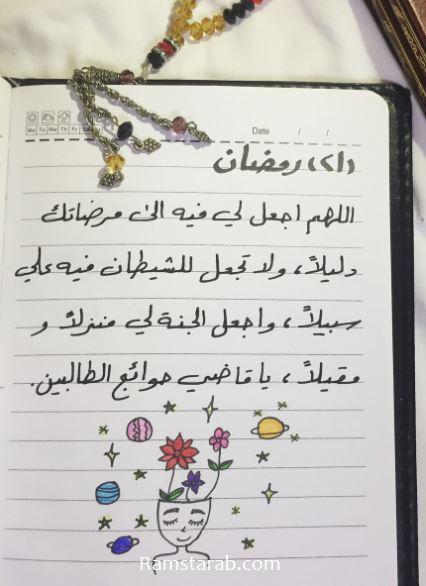 Mo Tu We Th Fr
Date / /
(٢١) رمضان
اللهم اجعل لي فيه الى مرضاتك
دليلاً، ولا تجعل للشيطان فيه علي
سبيلاً، واجعل الجنة لي منزلاً و
مقيلاً، يا قاضي حوائج الطالبين.
Ramstarab.com